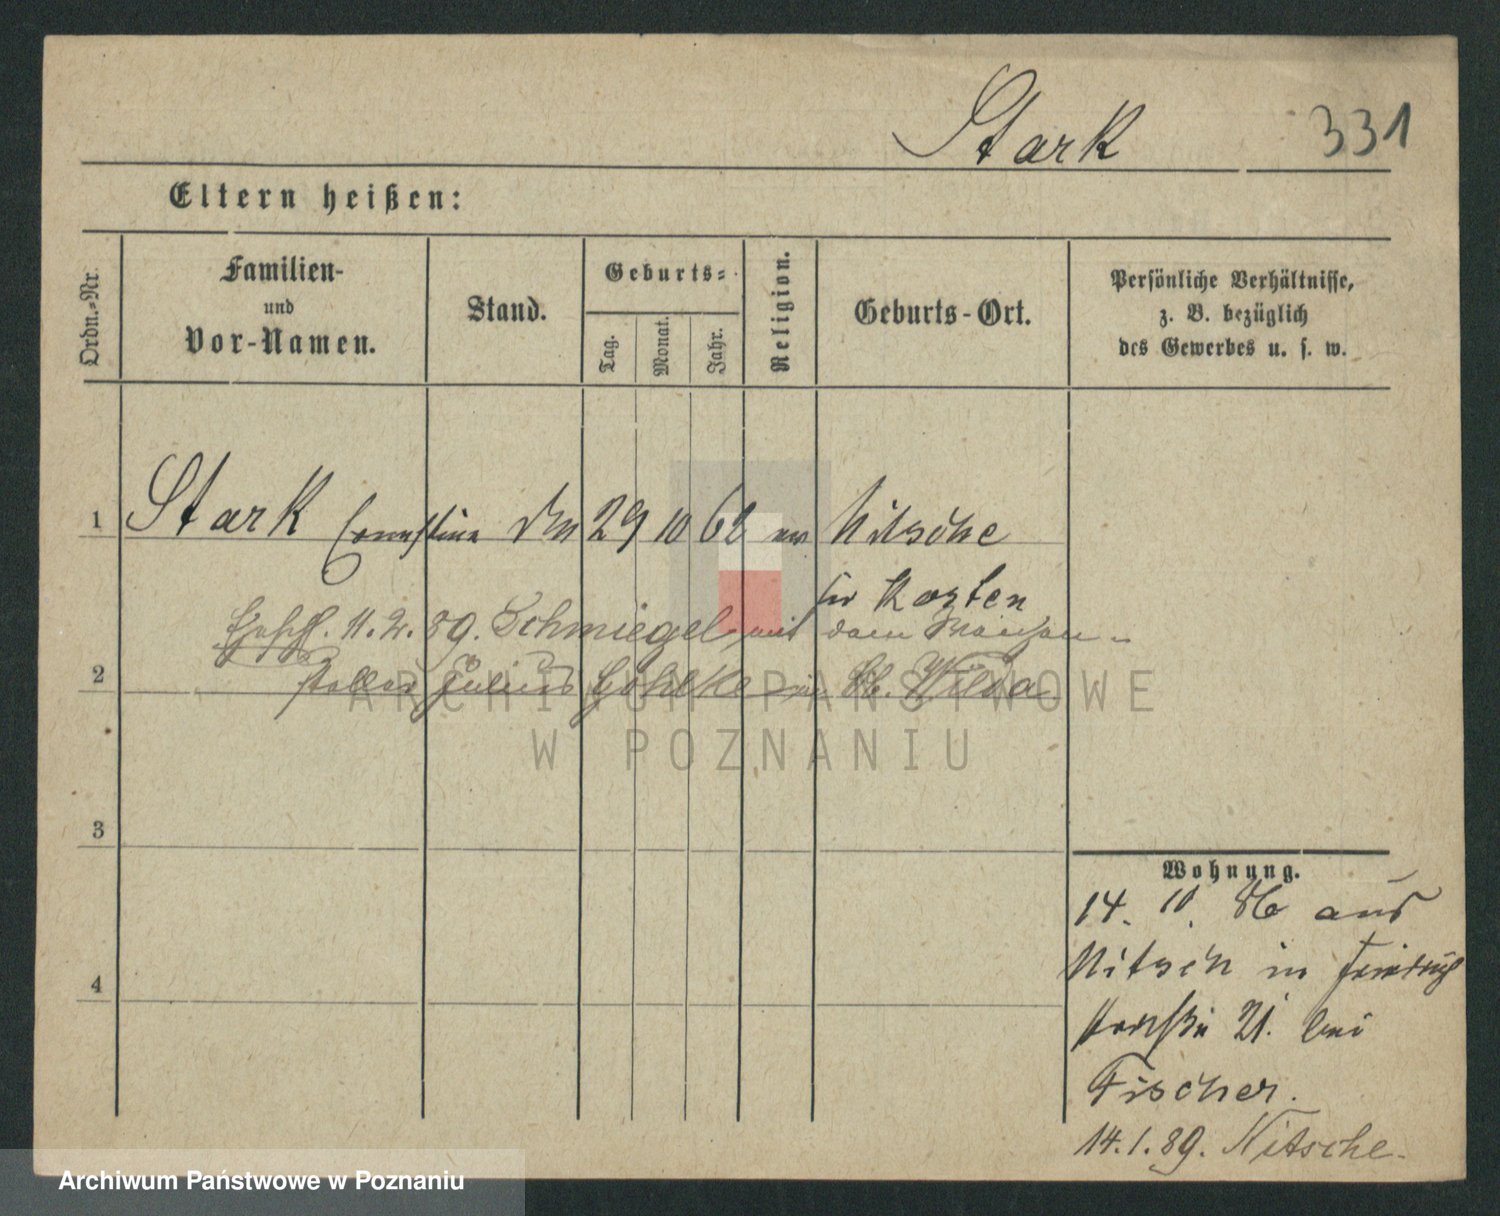 Stark 331
Eltern heißen:
Ordn.-Nr.
Familien-
und
Vor-Namen.
Stand.
Geburts-
Tag.
Monat.
Jahr.
Religion.
Geburts-Ort.
Persönliche Verhältnisse,
z. B. bezüglich
des Gewerbes u. s. w.
1 Stark Ernestine 29 10 62 ev Nitsche
Kr Kosten
11. 2. 89. Schmiegel mit dem
2 Julius Gohlke in St. Wilda
3
4
Wohnung.
14. 10. 86 aus
Nitsch in Friedrich
straße 21. bei
Fischer.
14.1.89. Nitsche.
ARCHIWUM PAŃSTWOWE
W POZNANIU
Archiwum Państwowe w Poznaniu